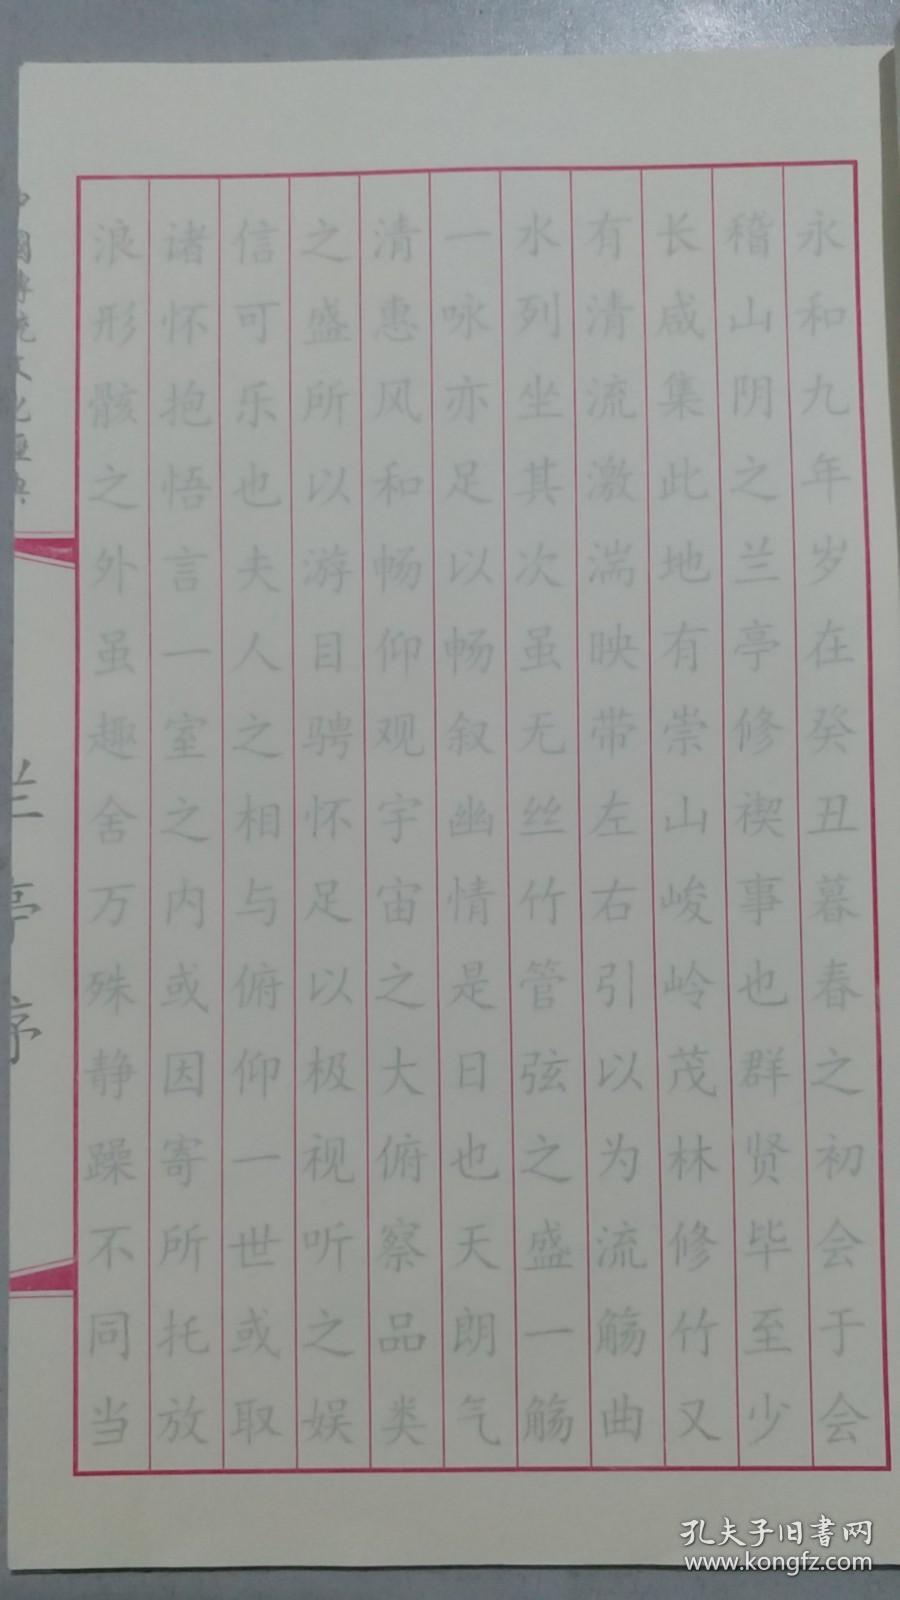 永和九年岁在癸丑暮春之初会于会
稽山阴之兰亭修禊事也群贤毕至少
长咸集此地有崇山峻岭茂林修竹又
有清流激湍映带左右引以为流觞曲
水列坐其次虽无丝竹管弦之盛一觞
一咏亦足以畅叙幽情是日也天朗气
清惠风和畅仰观宇宙之大俯察品类
之盛所以游目骋怀足以极视听之娱
信可乐也夫人之相与俯仰一世或取
诸怀抱悟言一室之内或因寄所托放
浪形骸之外虽趣舍万殊静躁不同当
中國傳統文化經典
兰亭序
孔夫子旧书网
www.kongfz.com